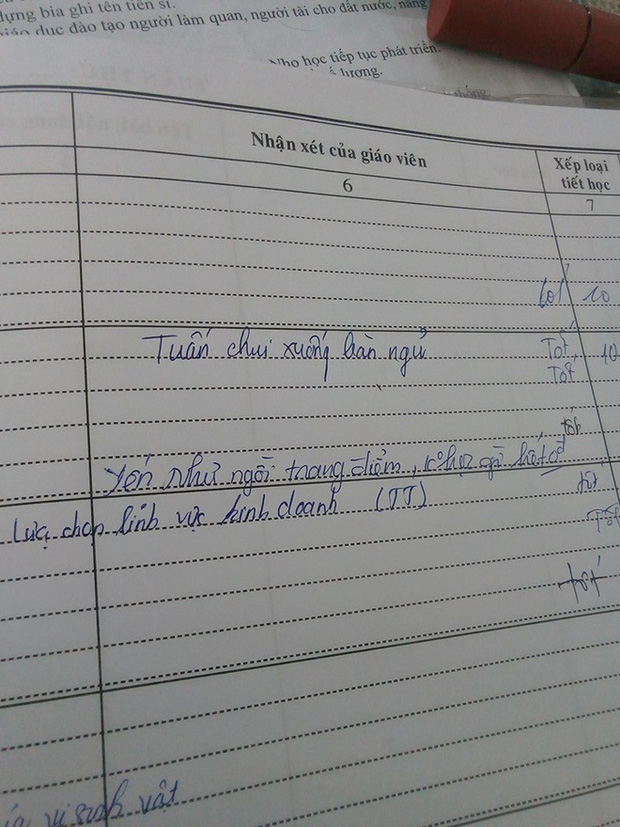 dựng bia ghi tên tiến sĩ.
giáo dục đào tạo người làm quan, người tài cho đất nước, nâng
Nho học tiếp tục phát triển.
lượng.
Nhận xét của giáo viên
Xếp loại
tiết học
6
7
10
Tuấn chui xuống bàn ngủ
Tốt
10
Tốt
tốt
Yến Như ngồi trang điểm, không học gì hết
tốt
Lựa chọn lĩnh vực kinh doanh (TT)
Tốt
tốt
vi sinh vật